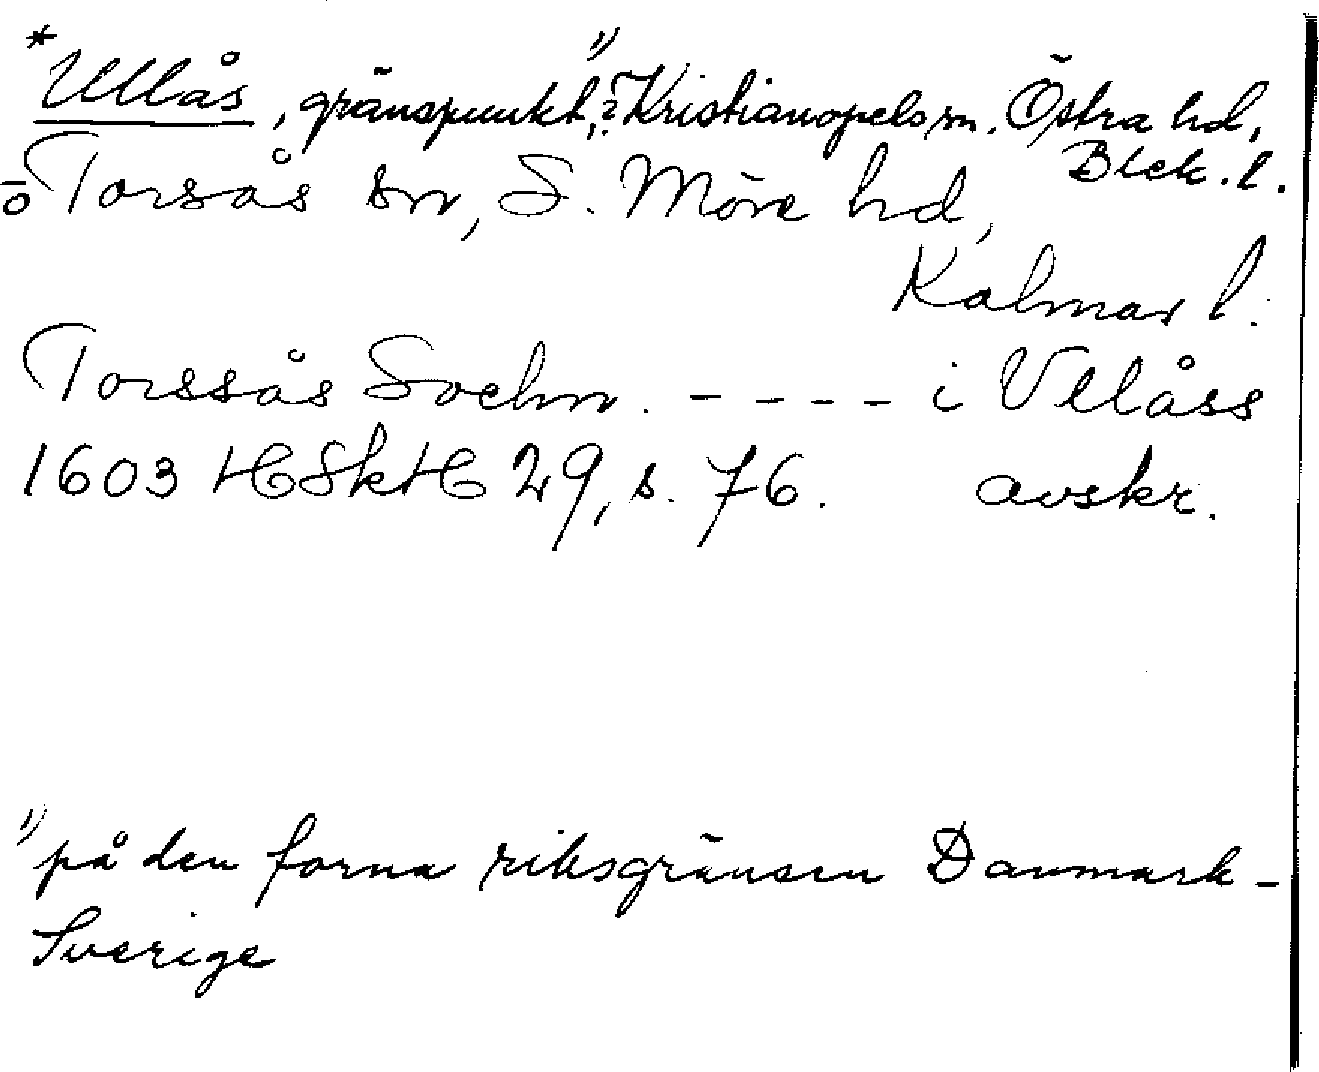 *Ullås, gränspunkt,¹⁾? Kristianopels sn. Östra hd,
Blek. l.
o Torsås sn, S. Möre hd,
Kalmar l.
Torssås Sochn. - - - - i Vllåss
1603 HSkH 29, s. 76. avskr.
¹⁾ på den forna riksgränsen Danmark-
Sverige